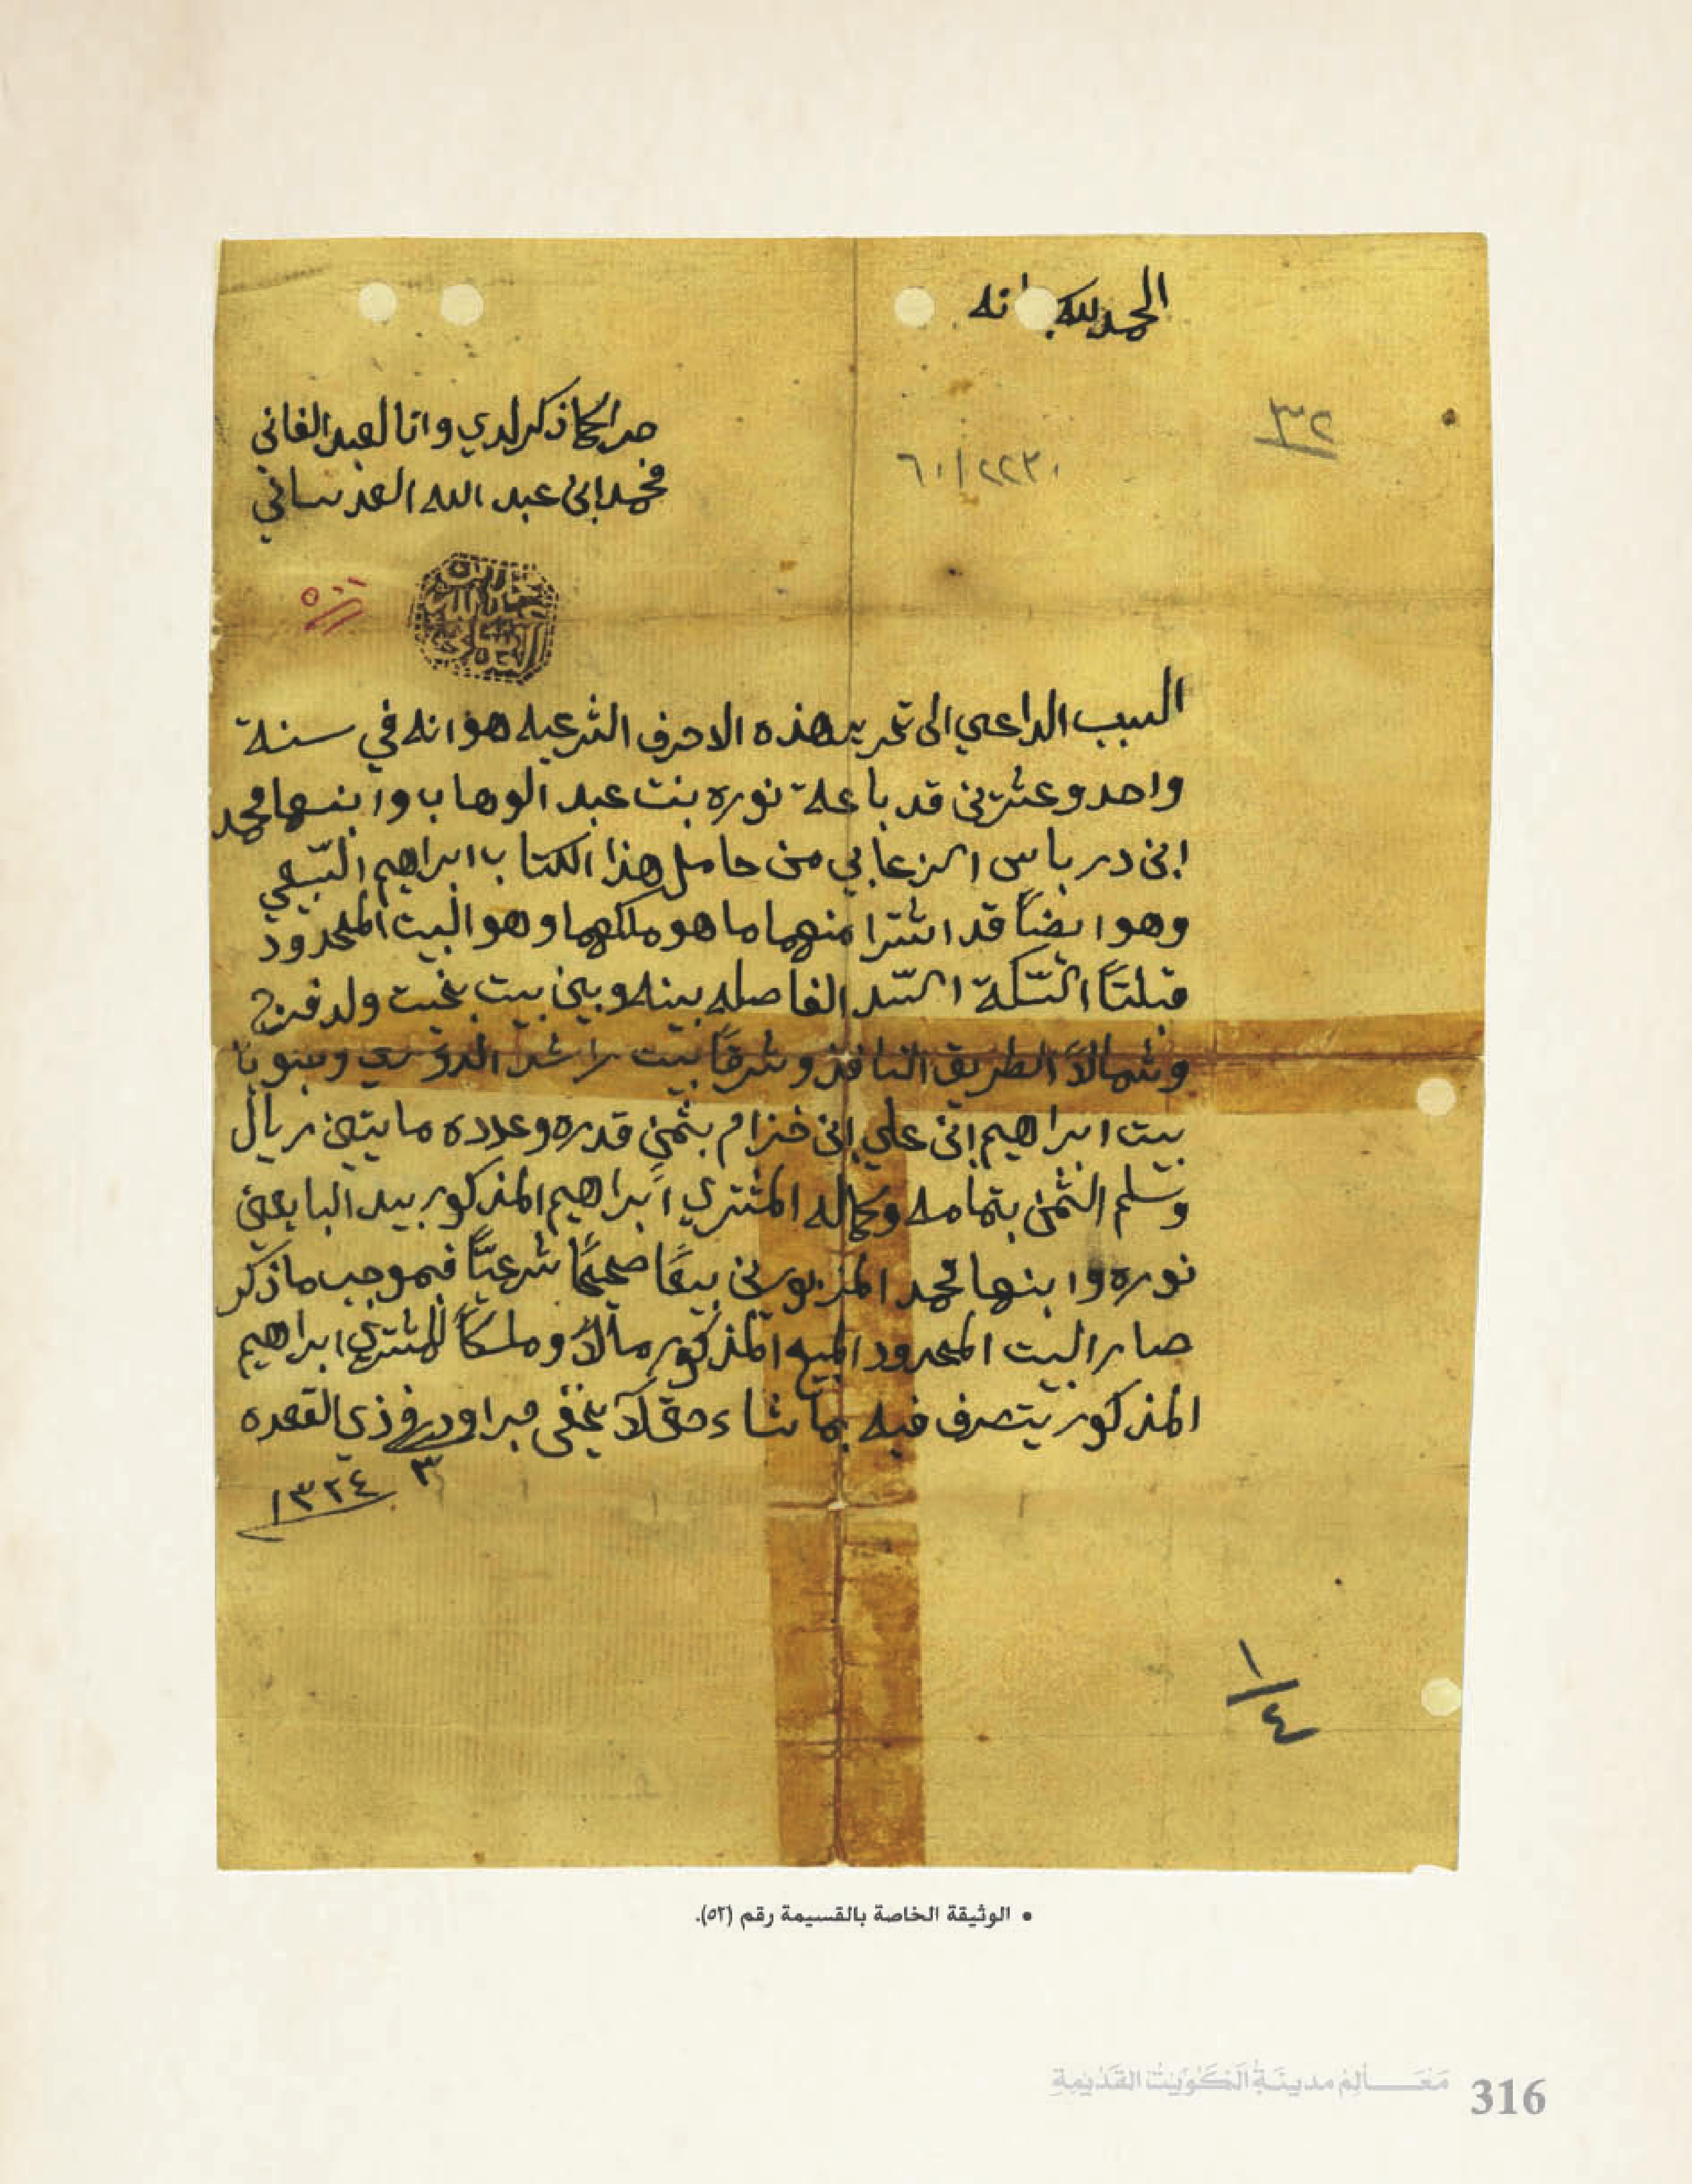 الحمد لله
٣٢
جرا كما ذكر لدي وانا العبد الفاني
محمد ابن عبد الله العدساني
٦٠/٢٢٣٠
السبب الداعي الى تحرير هذه الاحرف الشرعيه هو انه في سنة
واحد وعشرين قد باعة نوره بنت عبد الوهاب وابنها محمد
ابن درباس الزعابي من حامل هذا الكتاب ابراهيم
وهو ايضاً قد اشترا منهما ما هو ملكهما وهو البيت المحدود
قبلتاً السكة السد الفاصله بينه وبين بيت بخيت ولد فرج
وشمالاً الطريق النافذ وشرقاً بيت راشد الدوسري وجنوباً
بيت ابراهيم ابن علي ابن خزام بثمنٍ قدره وعدده مايتين ريال
وسلم الثمن بتمامه وكماله المشتري ابراهيم المذكور بيد البايعين
نوره وابنها محمد المزبورين بيعاً صحيحاً شرعيّاً فبموجب ما ذكر
صار البيت المحدود المبيع المذكور مالاً وملكاً للمشتري ابراهيم
المذكور يتصرف فيه بما شاء حتى لا يخفى جرا وحرر في ذي القعده
٣ ١٣٢٤
١/٤
• الوثيقة الخاصة بالقسيمة رقم (٥٢).
مَعَالِمُ مدينَةِ الكُوَيْتِ القَدِيمَةِ 316